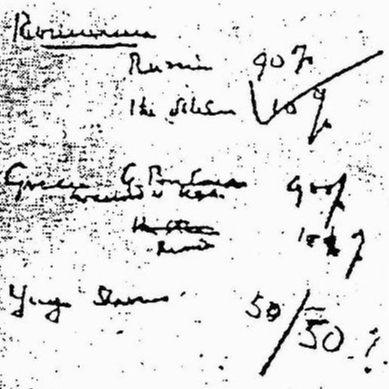 Roumania
Russia 90%
The others 10%
Greece G. Britain 90%
in accord w. USA
Russia 10%
Yugo Slavia 50/50 %